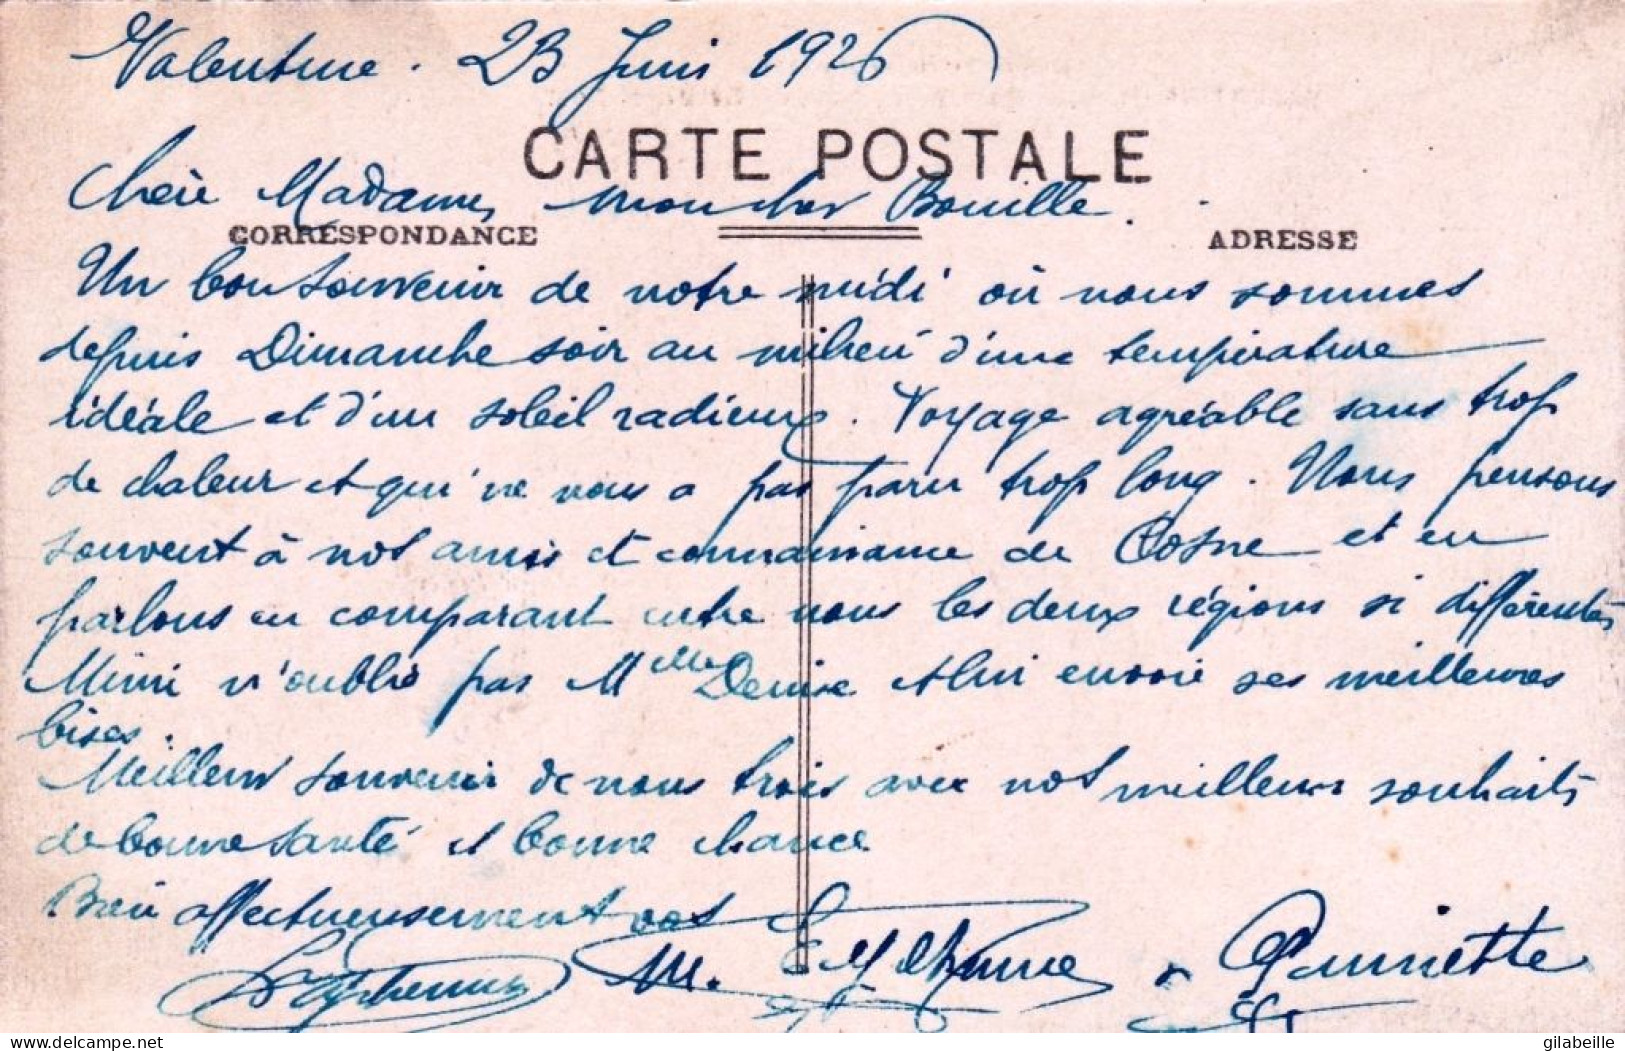 Valentine. 23 Juin 1926
CARTE POSTALE
Chère Madame, Bouille.
CORRESPONDANCE
ADRESSE
Un bon souvenir de notre midi où nous sommes
depuis Dimanche soir au milieu d'une température
idéale et d'un soleil radieux. Voyage agréable sans trop
de chaleur et qui ne nous a pas paru trop long. Nous pensons
souvent à nos amis et connaissance de Cosne et en
parlons en comparant entre nous les deux régions si différentes
Mimi n'oublie pas Melle Denise et lui envoie ses meilleures
bises.
Meilleur souvenir de nous trois avec nos meilleurs souhaits
de bonne santé et bonne chance
Bien affectueusement vos
M.
gilabeille